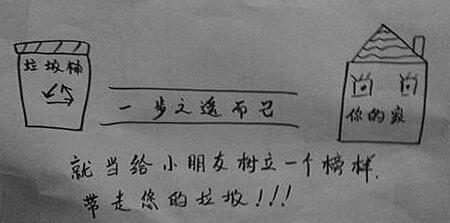 垃圾桶
一步之遥而已
你的家
就当给小朋友树立一个榜样.
带走您的垃圾!!!